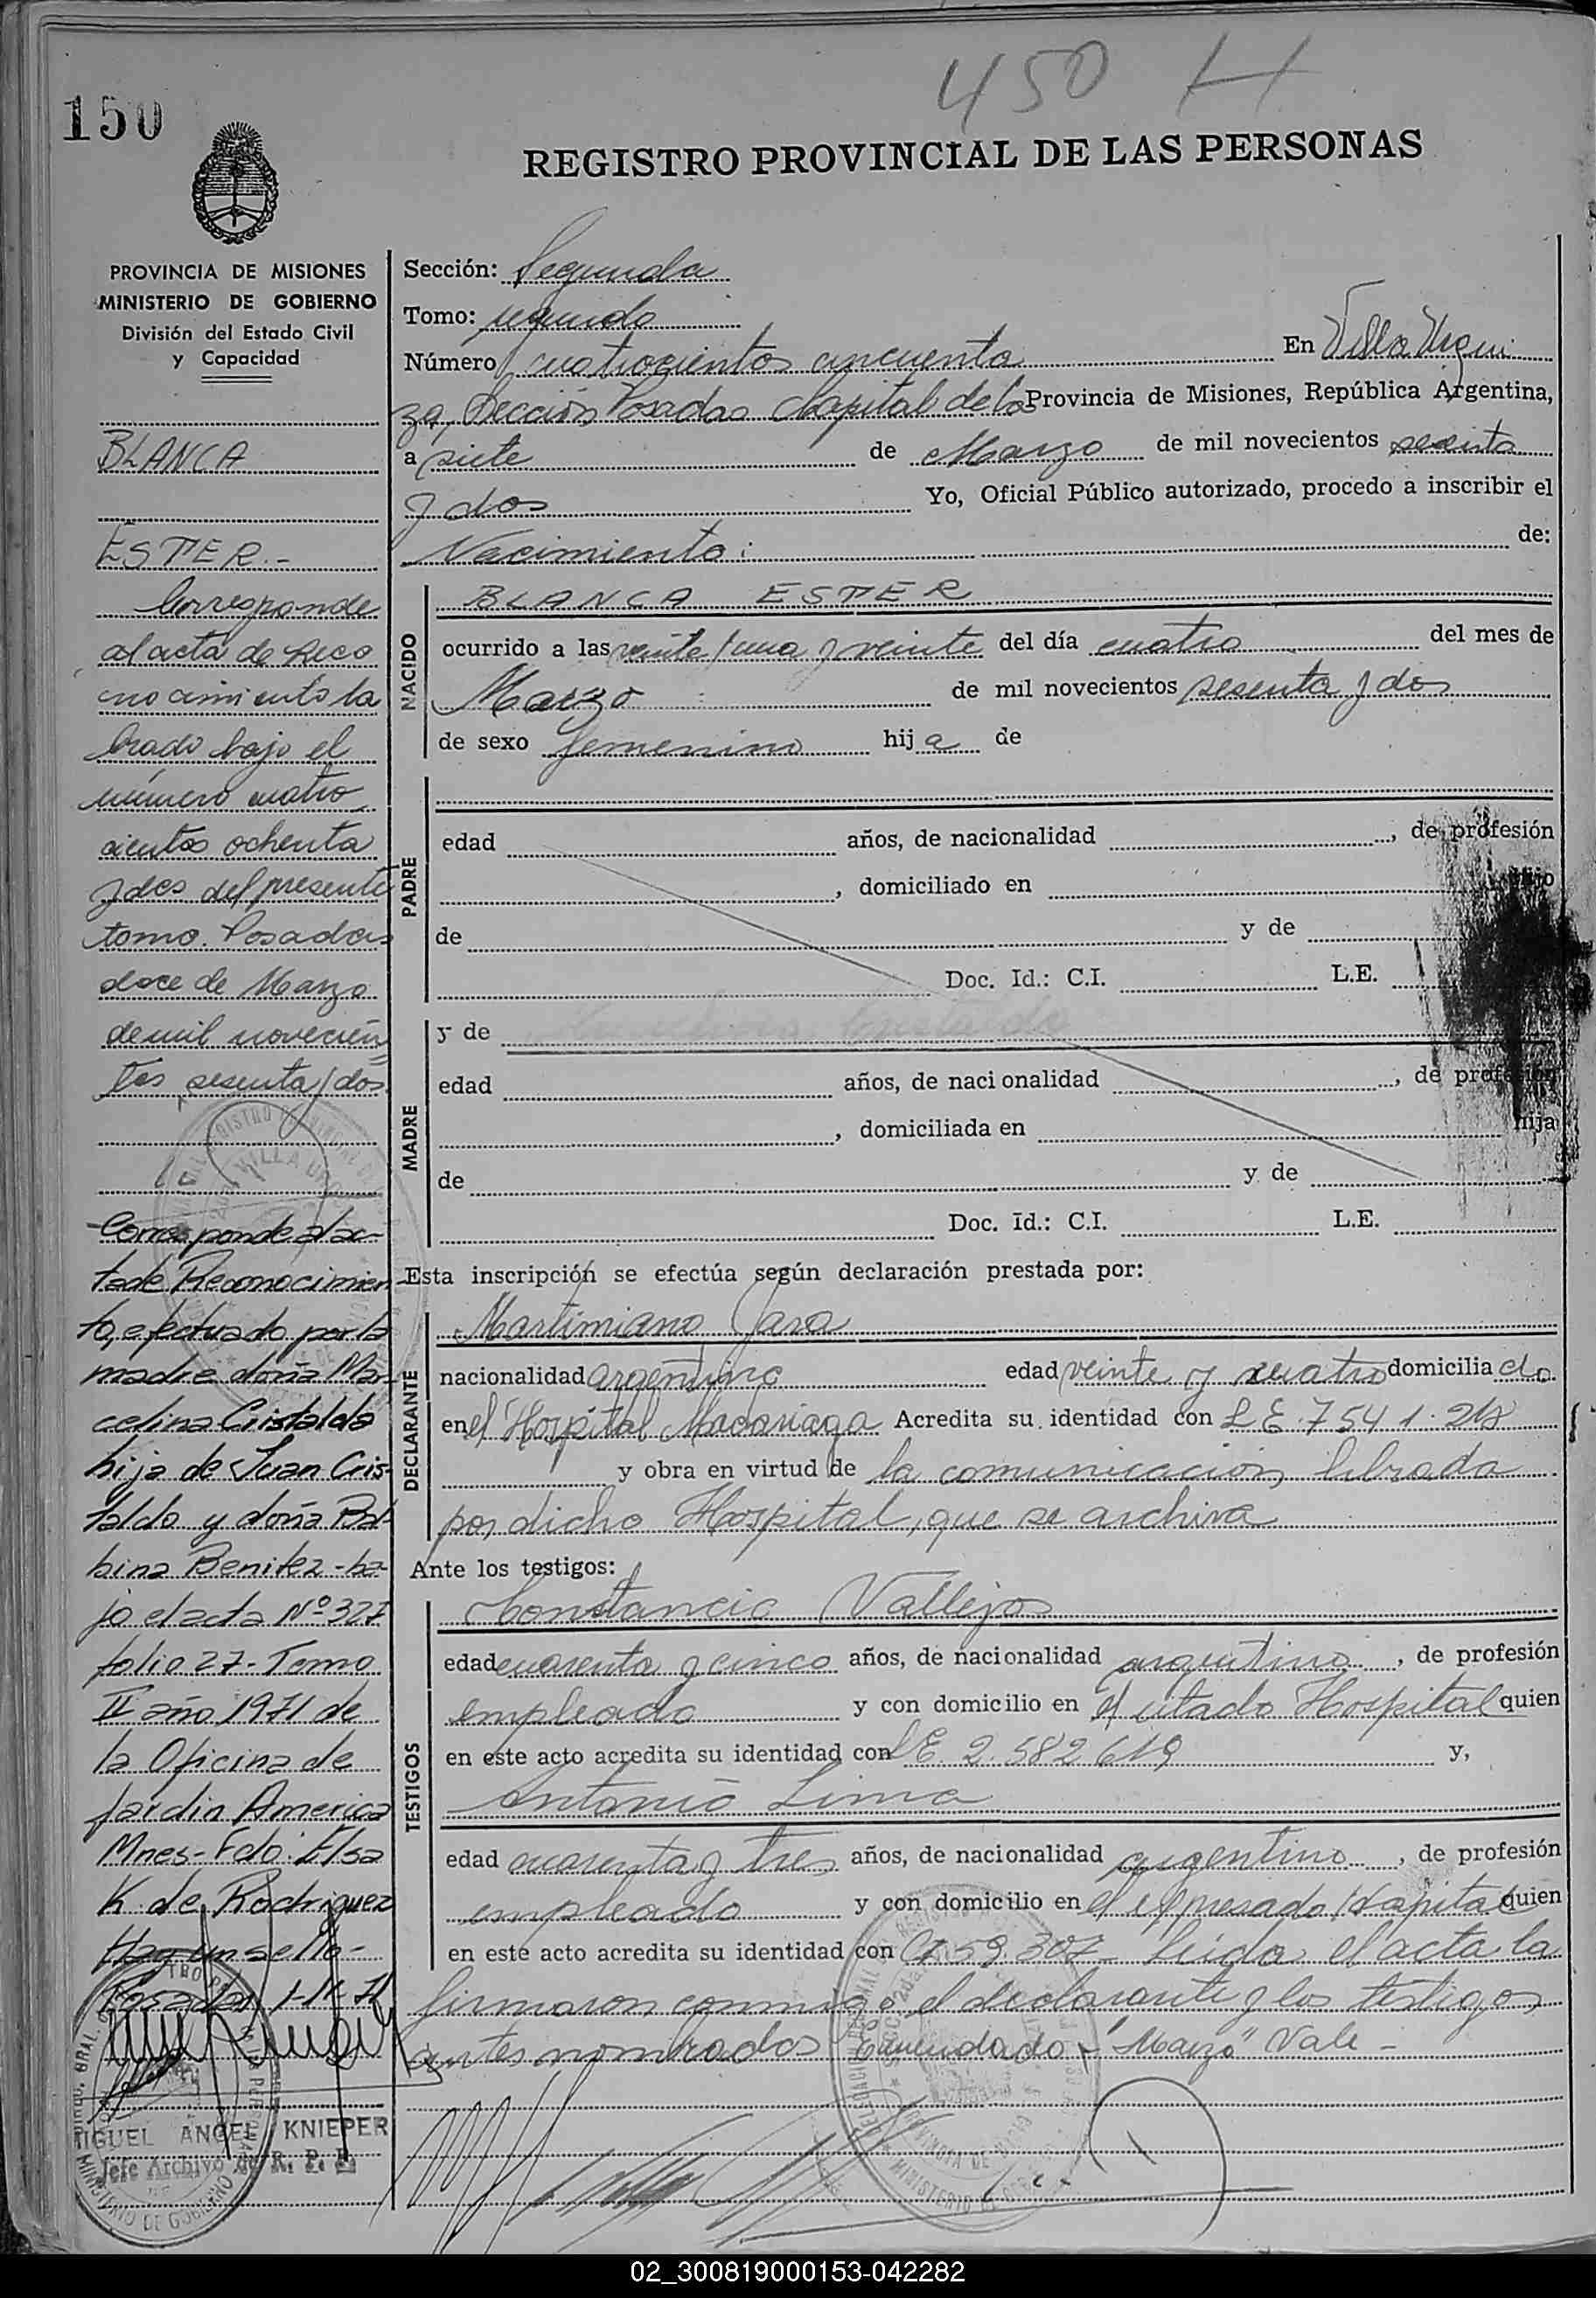 450 H
150
REGISTRO PROVINCIAL DE LAS PERSONAS
PROVINCIA DE MISIONES
MINISTERIO DE GOBIERNO
División del Estado Civil
y Capacidad
BLANCA
ESTER.-
Corresponde
al acta de Reco
nocimiento la
brado bajo el
número cuatro
cientos ochenta
y dos del presente
tomo. Posadas
doce de Marzo
de mil novecien
tos sesenta y dos
Corresponde al ac-
ta de Reconocimien
to, efectuado por la
madre doña Mar-
celina Cristaldo
hija de Juan Cris-
taldo y doña Bal
bina Benitez - ba-
jo el acta Nº 327
folio 27 - Tomo
II año 1971 de
la Oficina de
Jardin America
Mnes - Fdo: Elsa
K. de Rodriguez
Hay un sello -
Posadas, 1-11-71
MIGUEL ANGEL KNIEPER
Jefe Archivo de R. P. P.
Sección: Segunda
Tomo: segundo
Número cuatrocientos cincuenta En Villa Urqui
za, Sección Posadas Capital de la Provincia de Misiones, República Argentina,
a siete de Marzo de mil novecientos sesenta
y dos Yo, Oficial Público autorizado, procedo a inscribir el
Nacimiento: de:
NACIDO
BLANCA ESTER
ocurrido a las veinte y una y veinte del día cuatro del mes de
Marzo de mil novecientos sesenta y dos
de sexo femenino hija de
PADRE
edad años, de nacionalidad , de profesión
, domiciliado en hijo
de y de
Doc. Id.: C.I. L.E.
MADRE
y de
edad años, de nacionalidad , de profesión
, domiciliada en hija
de y de
Doc. Id.: C.I. L.E.
Esta inscripción se efectúa según declaración prestada por:
DECLARANTE
Martimiano Jara
nacionalidad argentina edad veinte y cuatro domiciliado
en el Hospital Madariaga Acredita su identidad con L E. 7541.218
y obra en virtud de la comunicación librada
por dicho Hospital, que se archiva
Ante los testigos:
TESTIGOS
Constancio Vallejos
edad cuarenta y cinco años, de nacionalidad argentino, de profesión
empleado y con domicilio en el citado Hospital quien
en este acto acredita su identidad con L E. 2.582.619 y,
Antonio Lima
edad cuarenta y tres años, de nacionalidad argentino, de profesión
empleado y con domicilio en el expresado Hospital quien
en este acto acredita su identidad con 59.307 - Leida el acta la
firmaron conmigo el declarante y los testigos
antes nombrados Enmendado - "Marzo" Vale -
02_300819000153-042282